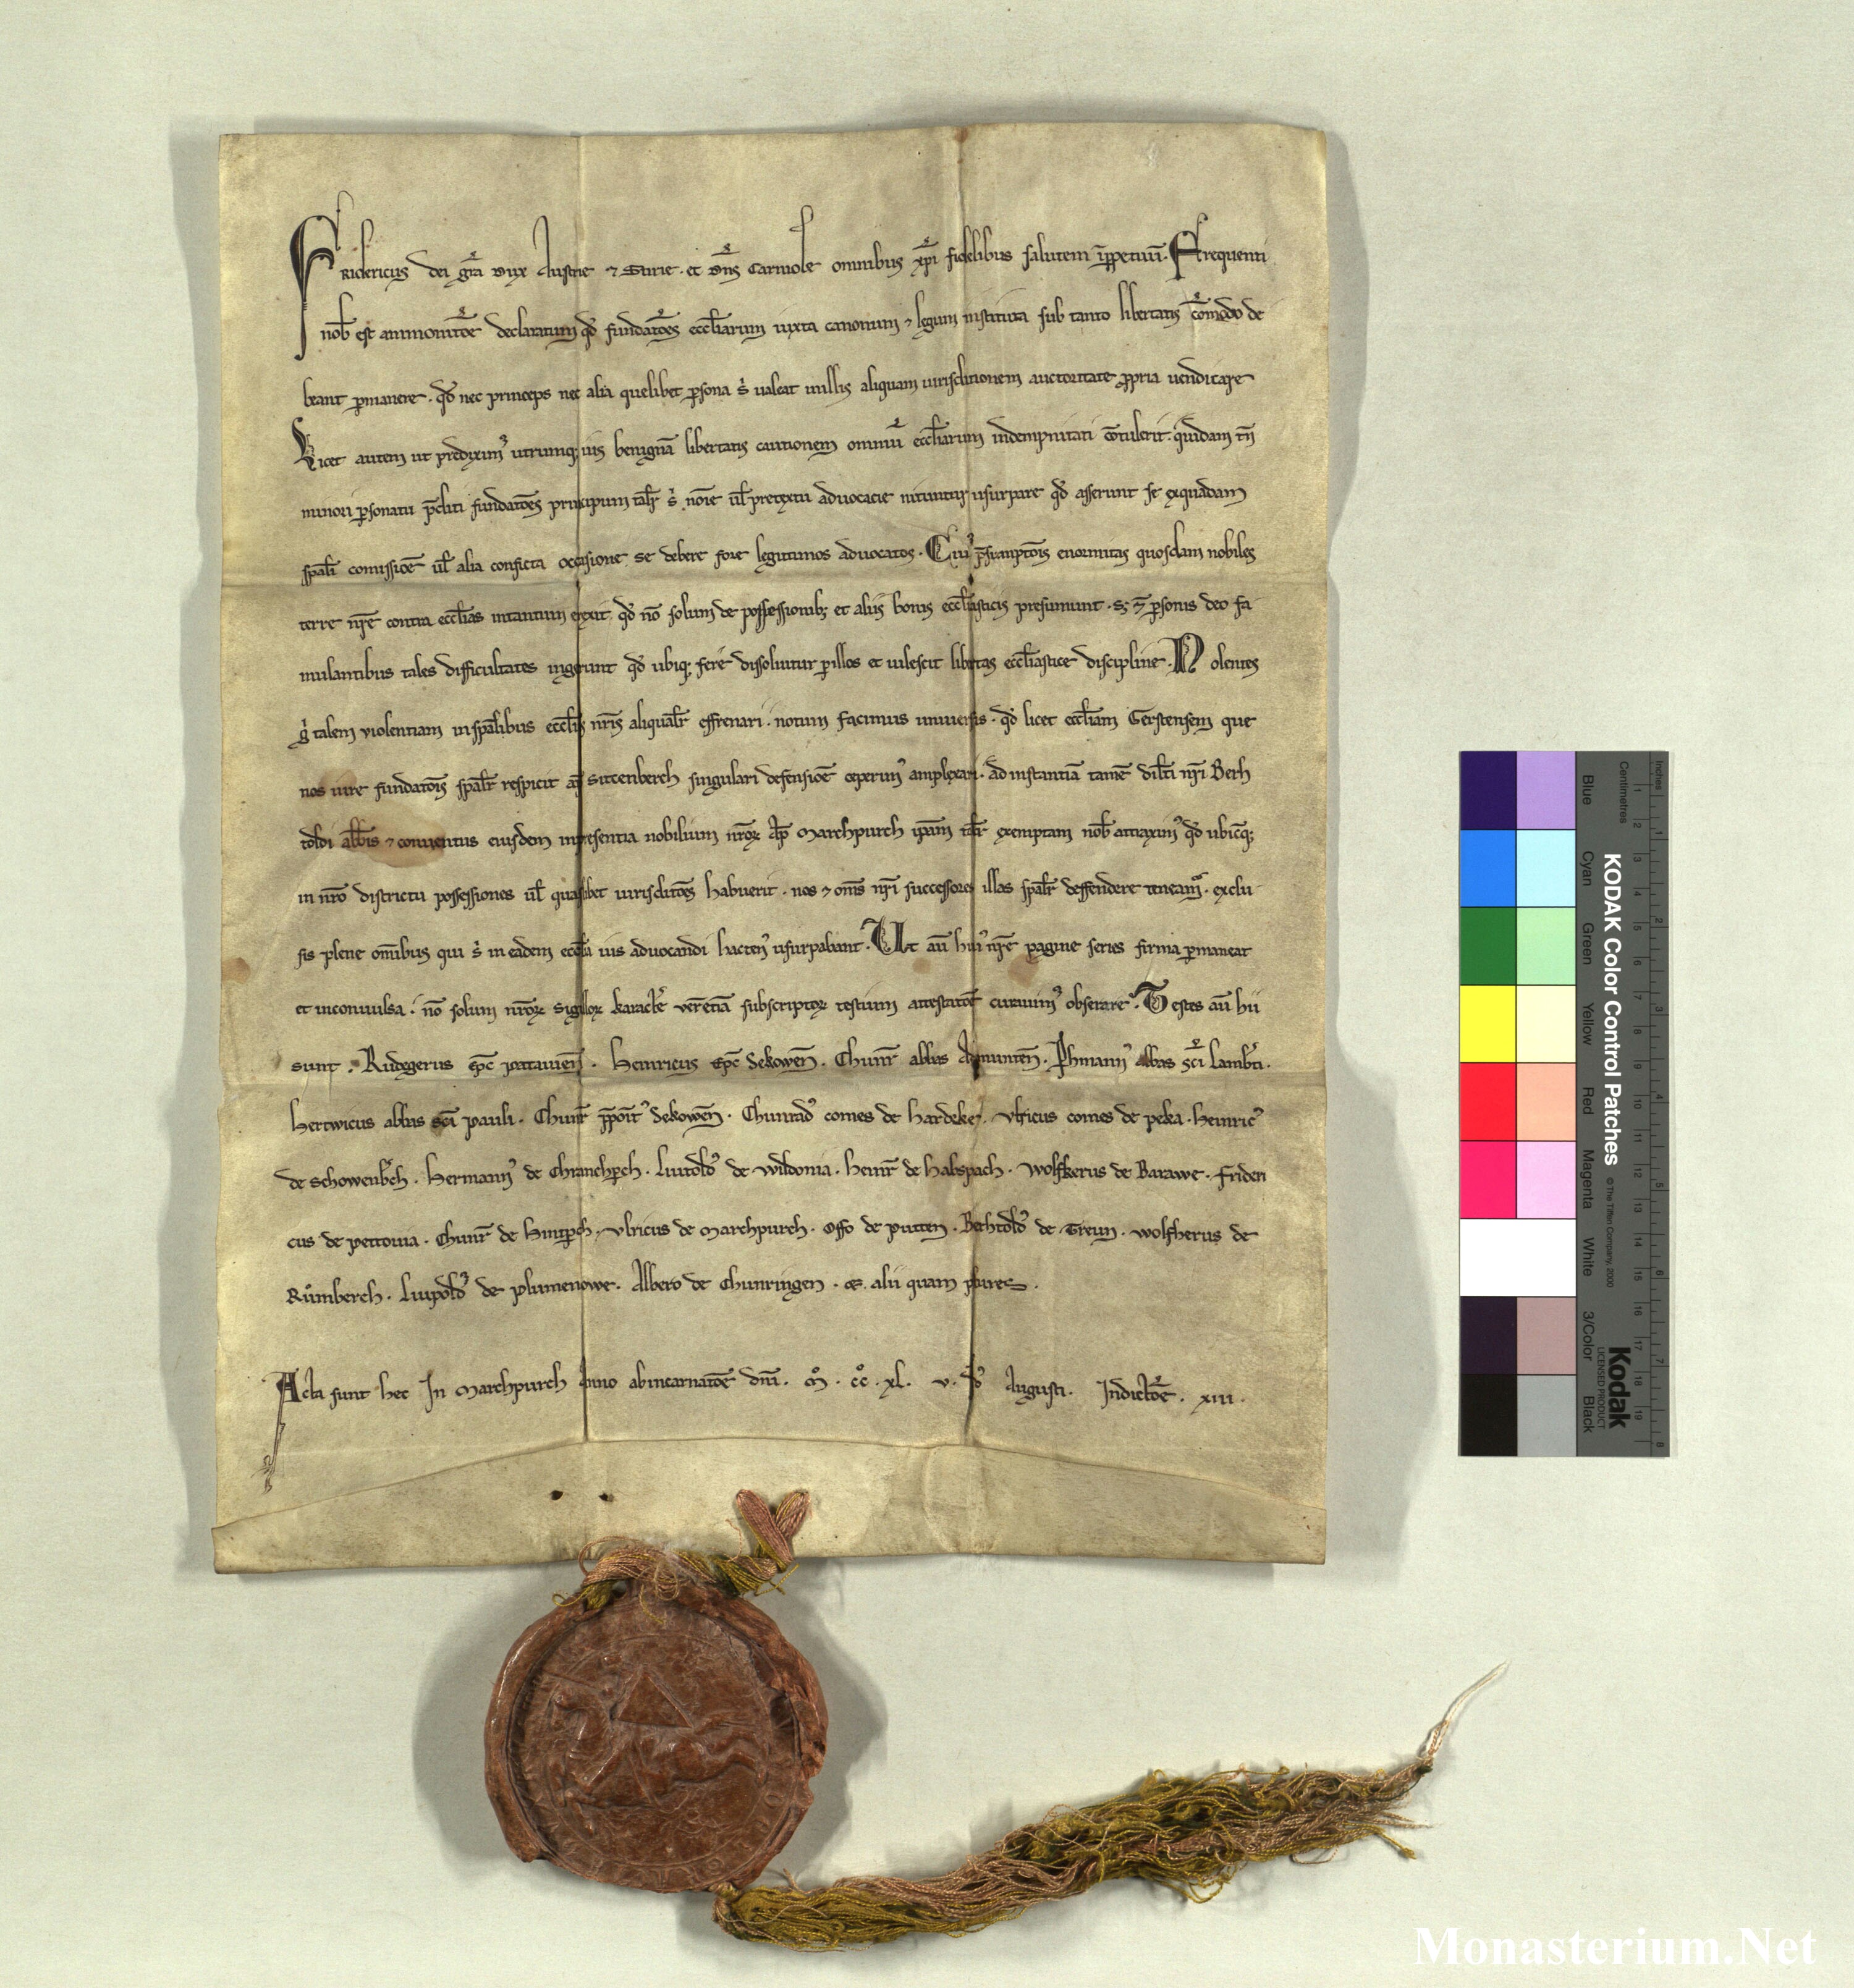 Fridericus dei gr̄a dux Austrie ⁊ Stirie. et dn̄s Carniole omnibus xp̄i fidelibus salutem īp̱petuū. Frequenti
nob̄ est ammonitōe declaratum qd̄ fundatōes eccl̄iarum iuxta canonum ⁊ legum instituta sub tanto libertatis cōmodo de
beant p̱manere. qd̄ nec princeps nec alia quelibet p̱sona s' ualeat in illis aliquam iurisditionem auctoritate ꝓpria uendicare
Licet autem ut prediximꝰ utrumqꝫ ius benignā libertatis cautionem omniū eccl̄iarum indempnitati cōtulerit. quidam tn̄
minori p̱sonatu p̄diti fundatōes principum tal̄r s' noīe ul̄ pretextu aduocacie nituntur usurpare qd̄ asserunt se exquadam
sp̄ali comissiōe ul̄ alia conficta occasione se debere fore legitimos aduocatos. Cuiꝰ p̄sumptōis enormitas quosdam nobiles
terre nr̄e contra eccl̄ias intantum erexit qd̄ nō solum de possessionibꝫ et aliis bonis eccl̄iasticis presumunt. sꝫ ⁊ p̱sonis deo fa
mulantibus tales difficultates ingerunt qd̄ ubiqꝫ fere dissoluitur p̱ illos et uilescit libertas eccl̄iastice discipline. Nolentes
g̊ talem violentiam in sp̄alibus eccl̄iis nr̄is aliqual̄r effrenari. notum facimus uniuersis. qd̄ licet eccl̄iam Gerstensem que
nos iure fundatōis sp̄al̄r respicit Sittenberch singulari defensiōe ceperimꝰ amplexari. ad instantiā tamē dil̄ti nr̄i Berh
toldi abb̄is ⁊ conuentus eiusdem in presentia nobilium nr̄oꝝ ap̄ Marchpurch ip̄am exemptam nob̄ attraximꝰ qd̄ ubicūqꝫ
in nr̄o districtu possessiones ul̄ quaslibet iurisditōes habuerit. nos ⁊ om̄s nr̄i successores illas sp̄al̄r deffendere teneamꝰ. exclu
sis plene om̄ibus qui s' in eadem eccl̄ia ius aduocandi hactenꝰ usurpabant. Ut aū huiꝰ nr̄e pagine series firma p̱maneat
et inconuulsa. nō solum nr̄oꝝ sigilloꝝ karactē̄r ver̄etiā subscriptoꝝ testium attestatōe curauimꝰ obserare. Testes aū hii
sunt. Rudegerus ep̄c patauien̄. Heinricus ep̄c Sekowen̄. Chunr̄ abbas Amunten̄. Phmannꝰ abbas sc̄i Lamb̄ti.
Hertwicus abbas sc̄i pauli. Chunr̄ pp̄oitꝰ Sekowen̄. Chunradꝰ comes de Hardeke. Ulricus comes de peka. Heinricꝰ
de Schowenb̄ch. Hermannꝰ de Chranchp̱ch. Liutoldꝰ de wildonia. Heinr̄ de Habspach. wolfkerus de Barawe. frideri
cus de pettouia. Chunr̄ de Hintp̱ch. Ulricus de Marchpurch. Offo de putten. Berhtoldꝰ de Treun. wolfherus de
Rumberch. Liupoldꝰ de plumenowe. Albero de Chunringen. et alii quam plures.
Acta sunt hec In Marchpurch Anno ab incarnatōe dn̄i. M̊. cc̊. xl. v. Id' Augusti. Indictōe. xiii.
KODAK Color Control Patches
© The Tiffen Company, 2000
Kodak
LICENSED PRODUCT
Inches
Centimetres
Blue
Cyan
Green
Yellow
Red
Magenta
White
3/Color
Black
Monasterium.Net